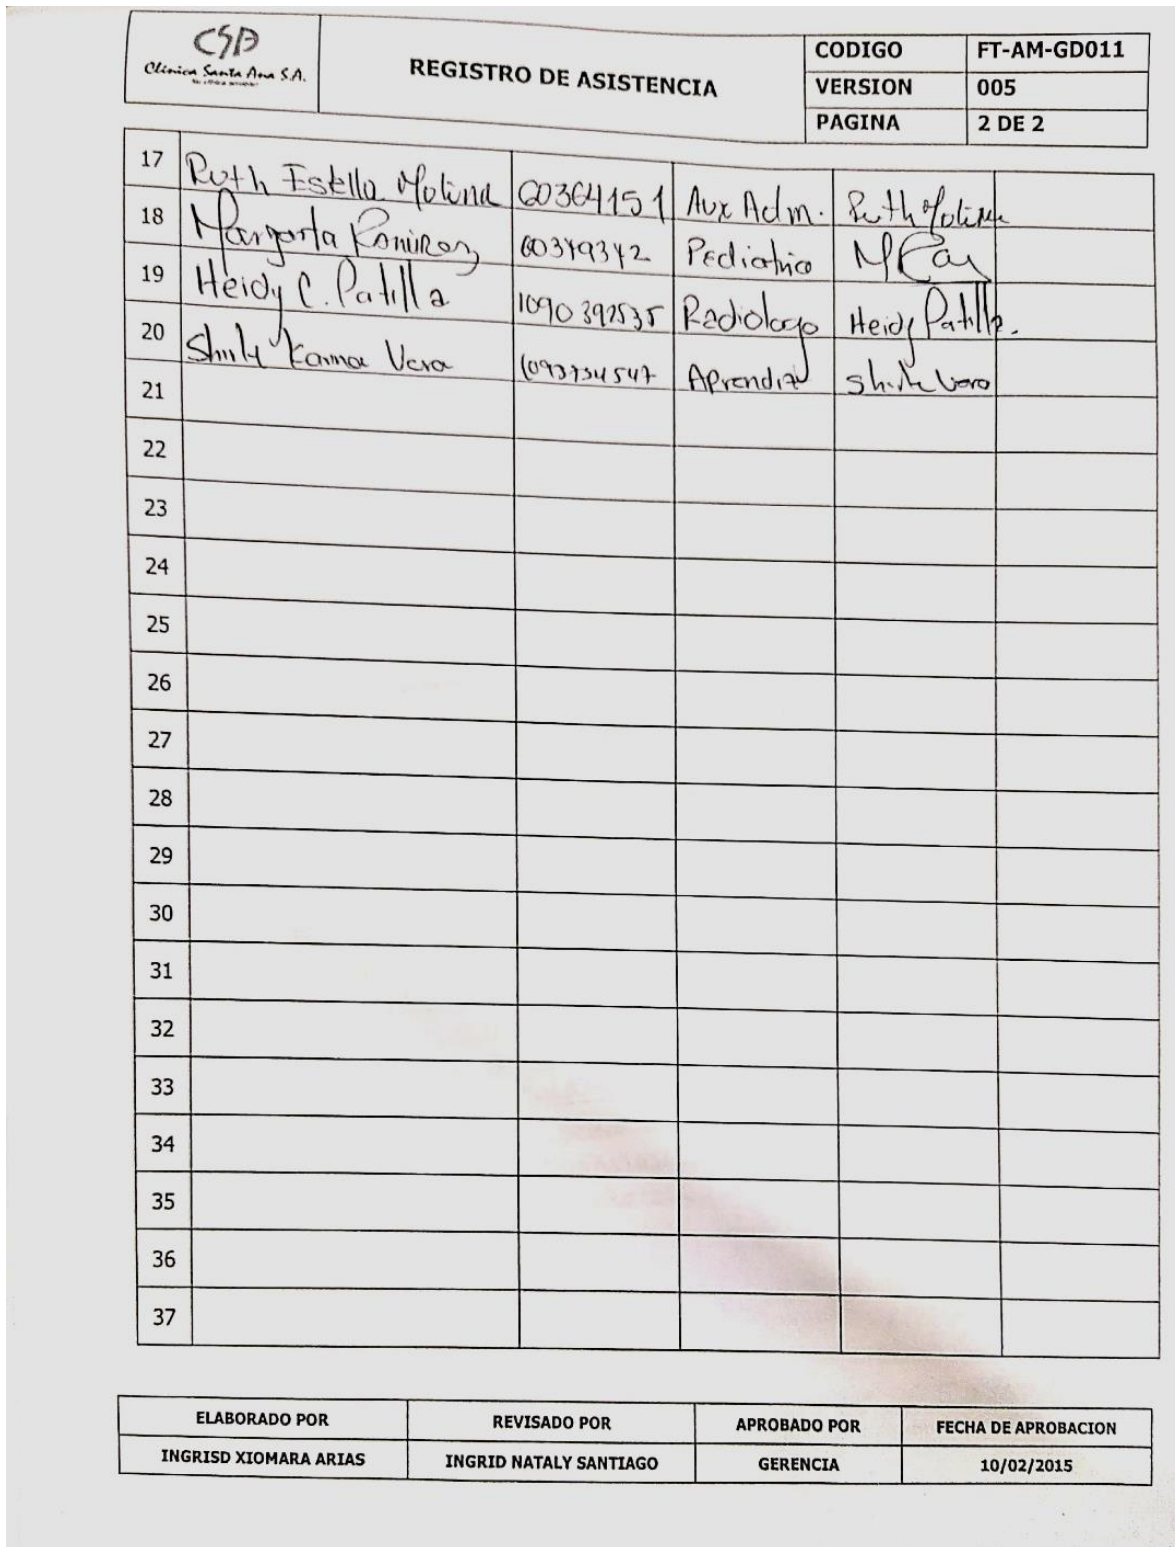 CSA
Clínica Santa Ana S.A.
REGISTRO DE ASISTENCIA
CODIGO FT-AM-GD011
VERSION 005
PAGINA 2 DE 2
17 Ruth Estella Molina 60364151 Aux Adm. Ruth Molina
18 Margarita Ramirez 60349342 Pediatrica
19 Heidy C. Patilla 1090392535 Radiologo Heidy Patilla.
20 Vera Aprendiz Vera
21
22
23
24
25
26
27
28
29
30
31
32
33
34
35
36
37
ELABORADO POR REVISADO POR APROBADO POR FECHA DE APROBACION
INGRISD XIOMARA ARIAS INGRID NATALY SANTIAGO GERENCIA 10/02/2015